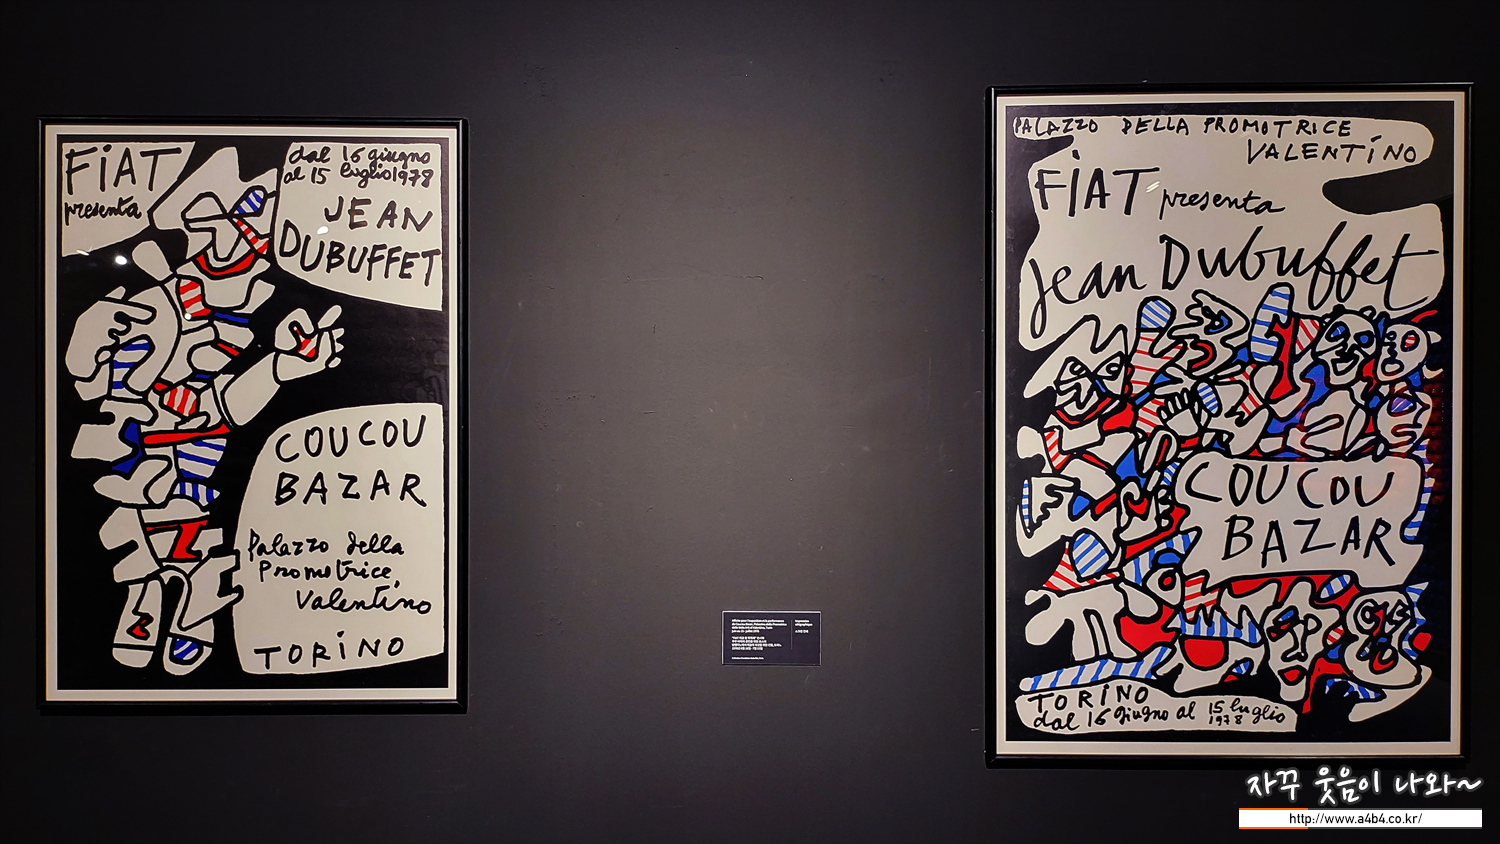 FiAT
presenta
dal 16 giugno
al 15 luglio 1978
JEAN
DUBUFFET
COUCOU
BAZAR
Palazzo della
Promotrice,
Valentino
TORiNO
PALAZZO DELLA PROMOTRICE
VALENTiNO
FiAT presenta
Jean Dubuffet
COUCOU
BAZAR
TORiNO
dal 16 giugno al 15 luglio
1978
자꾸 웃음이 나와~
http://www.a4b4.co.kr/